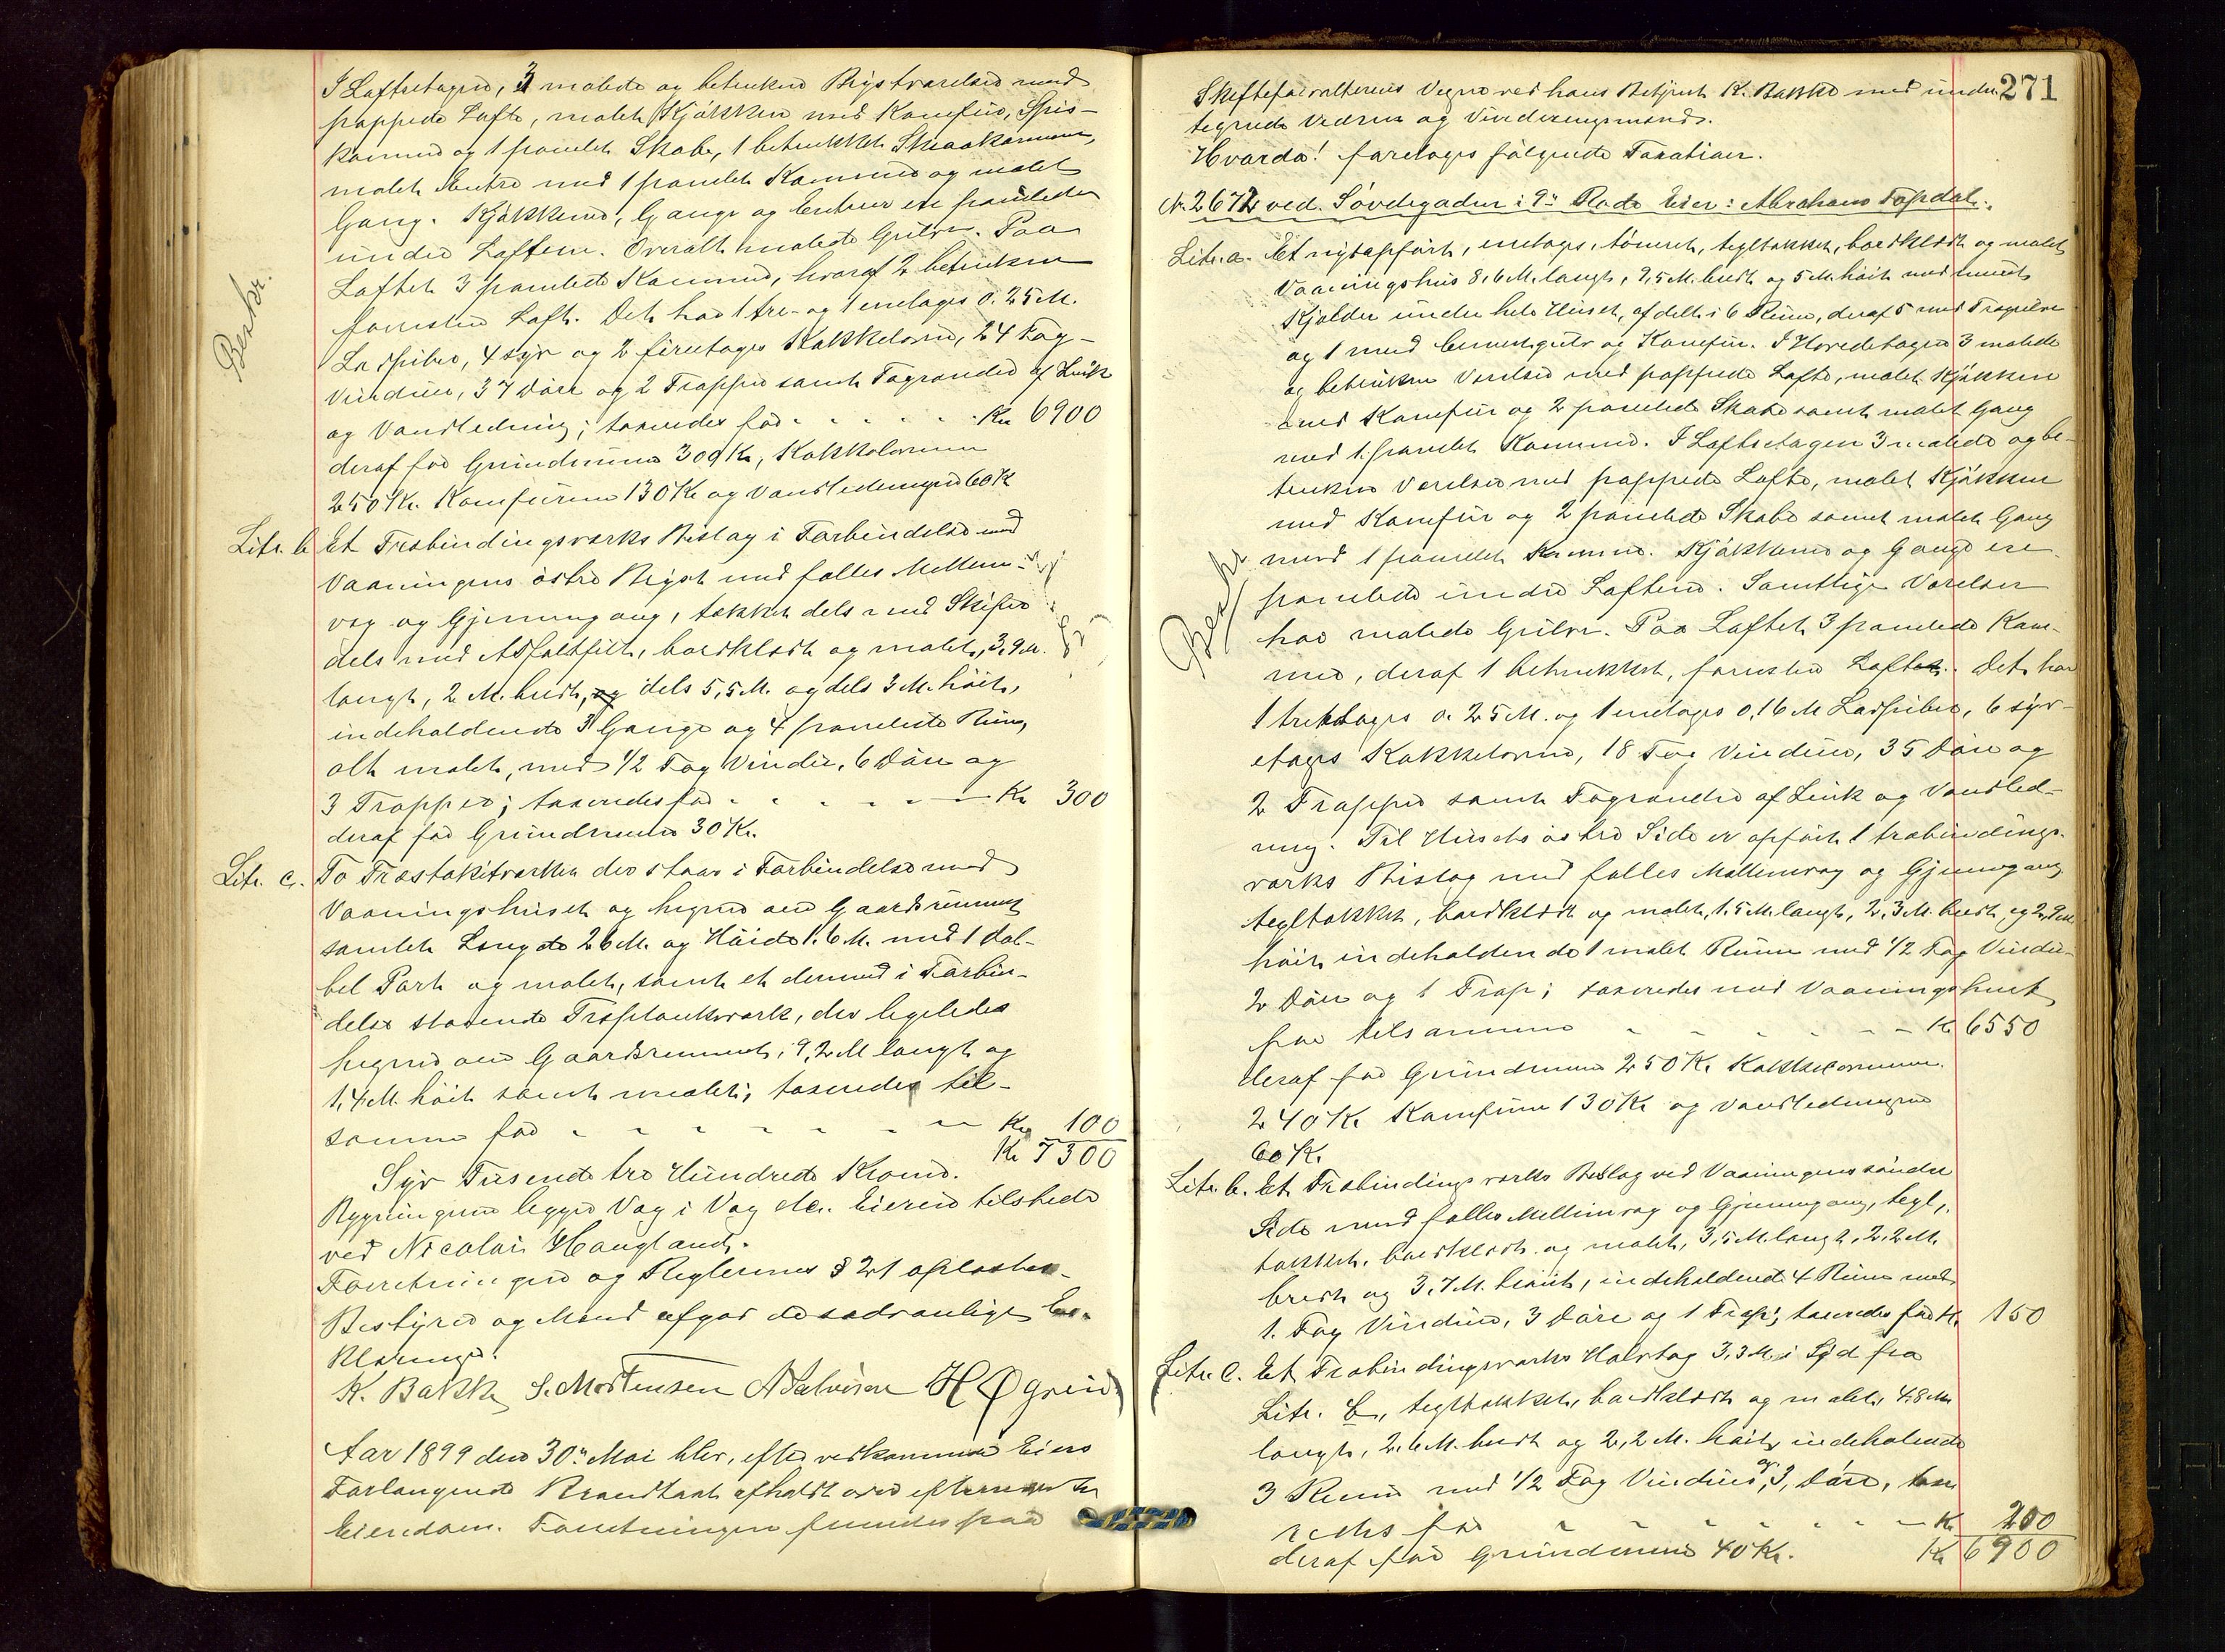 I Loftsetagen, 3 malede og betrukne Bigstværelser med
pappede Lofte, malet Kjøkken med Komfur, Spis-
kammer og 1 panelet Skabe, 1 betrukket Skraakammer,
malet Entre med 1 panelet Kammer og malet
Gang. Kjøkkener, Gange og Entreer ere panelede
under Loftene. Overalt malede Gulve. Paa
Loftet 3 panelede Kammer, hvoraf 2 betrukne
forresten Loft. Det har 1 tre- og 1 enetages 0.25 M.
Ladpiber, 4 syv og 2 fireetages Kakkelovne, 24 Fag-
Vinduer, 37 Døre og 2 Trapper samt Tagrender af Zink
og Vandledning; taxeredes for - - - - - Kr 6900
deraf for Grundmuren 300 Kr, Kakkelovnene
250 Kr. Komfurene 130 Kr og Vandledningen 60 Kr
Beskr.
Litr. b. Et Træbindingsværks Bislag i Forbindelse med
Vaaningens østre Bigst med fælles Mellem-
væg og Gjennemgang, tækket dels med Skifer
dels med Asfaltfilt, bordklædt og malet, 3,9 M.
langt, 2 M. bredt, og dels 5,5 M. og dels 3 M. høit,
indeholdende 3 Gange og 4 panelede Rum,
alt malet, med 1/2 Fag Vindu, 6 Døre og
3 Trapper; taxeredes for - - - - - Kr 300
deraf for Grundmuren 30 Kr.
Litr. c. To Træstakitværker der staar i Forbindelse med
Vaaningshuset og hegner om Gaardsrummet
samlet Længde 26 M. og Høide 1.6 M. med 1 dob-
bel Port og malet, samt et dermed i Forbin-
delse staaende Træplankeværk, der ligeledes
hegner om Gaardsrummet, 9,2 M langt og
1,4 M. høit samt malet; taxeredes til-
samme for - - - - - - Kr 100
Kr 7300
Syv Tusende tre Hundrede Kroner.
Bygningerne ligger Væg i Væg etc. Eieren tilstede
ved Nicolai Haugland.
Forretningen og Reglernes § 21 oplæstes.
Bestyrer og Mænd afgav de sædvanlige Er-
klæringer.
K. Bakke S. Mortensen A Salvesen H Øgreid
Aar 1899 den 30te Mai blev, efter vedkommende Eiers
Forlangende Brandtaxt afholdt over efternævnte
Eiendom. Forretningen fremedes paa
271
Skifteforvalterens Vegne ved hans Betjent K. Bakke med under-
tegnede Vidner og Vurderingsmænd.
Hvorda! foretages følgende Taxation.
Nr. 2672 ved. Søvdegaden i 9de Rode Eier: Abraham Topdal.
Litr. a. Et nyopført, enetages, tømret, tegltækket, bordklædt og malet
Vaaningshus 8,6 M. langt, 7,5 M. bredt og 5 M. høit med muret
Kjelder under hele Huset, afdelt i 6 Rum, deraf 5 med Trægulve
og 1 med Cementgulv og Komfur. I Hovedetagen 3 malede
og betrukne Værelser med pappede Lofte, malet Kjøkken
med Komfur og 2 panelede Skabe samt malet Gang
med 1 panelet Kammer. I Loftsetagen 3 malede og be-
trukne Værelser med pappede Lofte, malet Kjøkken
med Komfur og 2 panelede Skabe samt malet Gang
med 1 panelet Kammer. Kjøkkener og Gange ere
panelede under Loftene. Samtlige Værelser
har malede Gulve. Paa Loftet 3 panelede Kam-
mer, deraf 1 betrukket, forresten Loft. Det har
1 treetages 0.25 M. og 1 enetages 0,16 M Ladpiber, 6 syv-
etages Kakkelovne, 18 Fag Vinduer, 35 Døre og
2 Trapper samt Tagrender af Zink og Vandled-
ning. Til Husets østre Side er opført 1 træbindings-
værks Bislag med fælles Mellemvæg og Gjennemgang
tegltækket, bordklædt og malet, 1.5 M. langt, 2,3 M. bredt og 2,9 M
høit indeholdende 1 malet Rum med 1/2 Fag Vindu-
2 Døre og 1 Trap; taxeredes med Vaaningshuset
for tilsammen - - - - - - Kr 6550
deraf for Grundmuren 250 Kr. Kakkelovnene
240 Kr Komfurene 130 Kr og Vandledningen
60 Kr.
Beskr
Litr. b. Et Træbindingsværks Bislag ved Vaaningens søndre
Side med fælles Mellemvæg og Gjennemgang, tegl-
tækket, bordklædt og malet, 3,5 M. langt, 2,2 M.
bredt og 3,7 M. høit, indeholdende 4 Rum med
1. Fag Vinduer, 3 Døre og 1 Trap; taxeredes for Kr. 150
Litr. c. Et Træbindingsværks Halvtag 3,3 M. i Syd fra
Litr. b, tegltækket, bordklædt og malet, 4,8 M
langt, 2,6 M. bredt og 2,2 M. høit, indeholdende
3 Rum med 1/2 Fag Vinduer, og 3 Døre, taxe-
redes for - - - - - - Kr 200
deraf for Grundmuren 40 Kr. Kr 6900